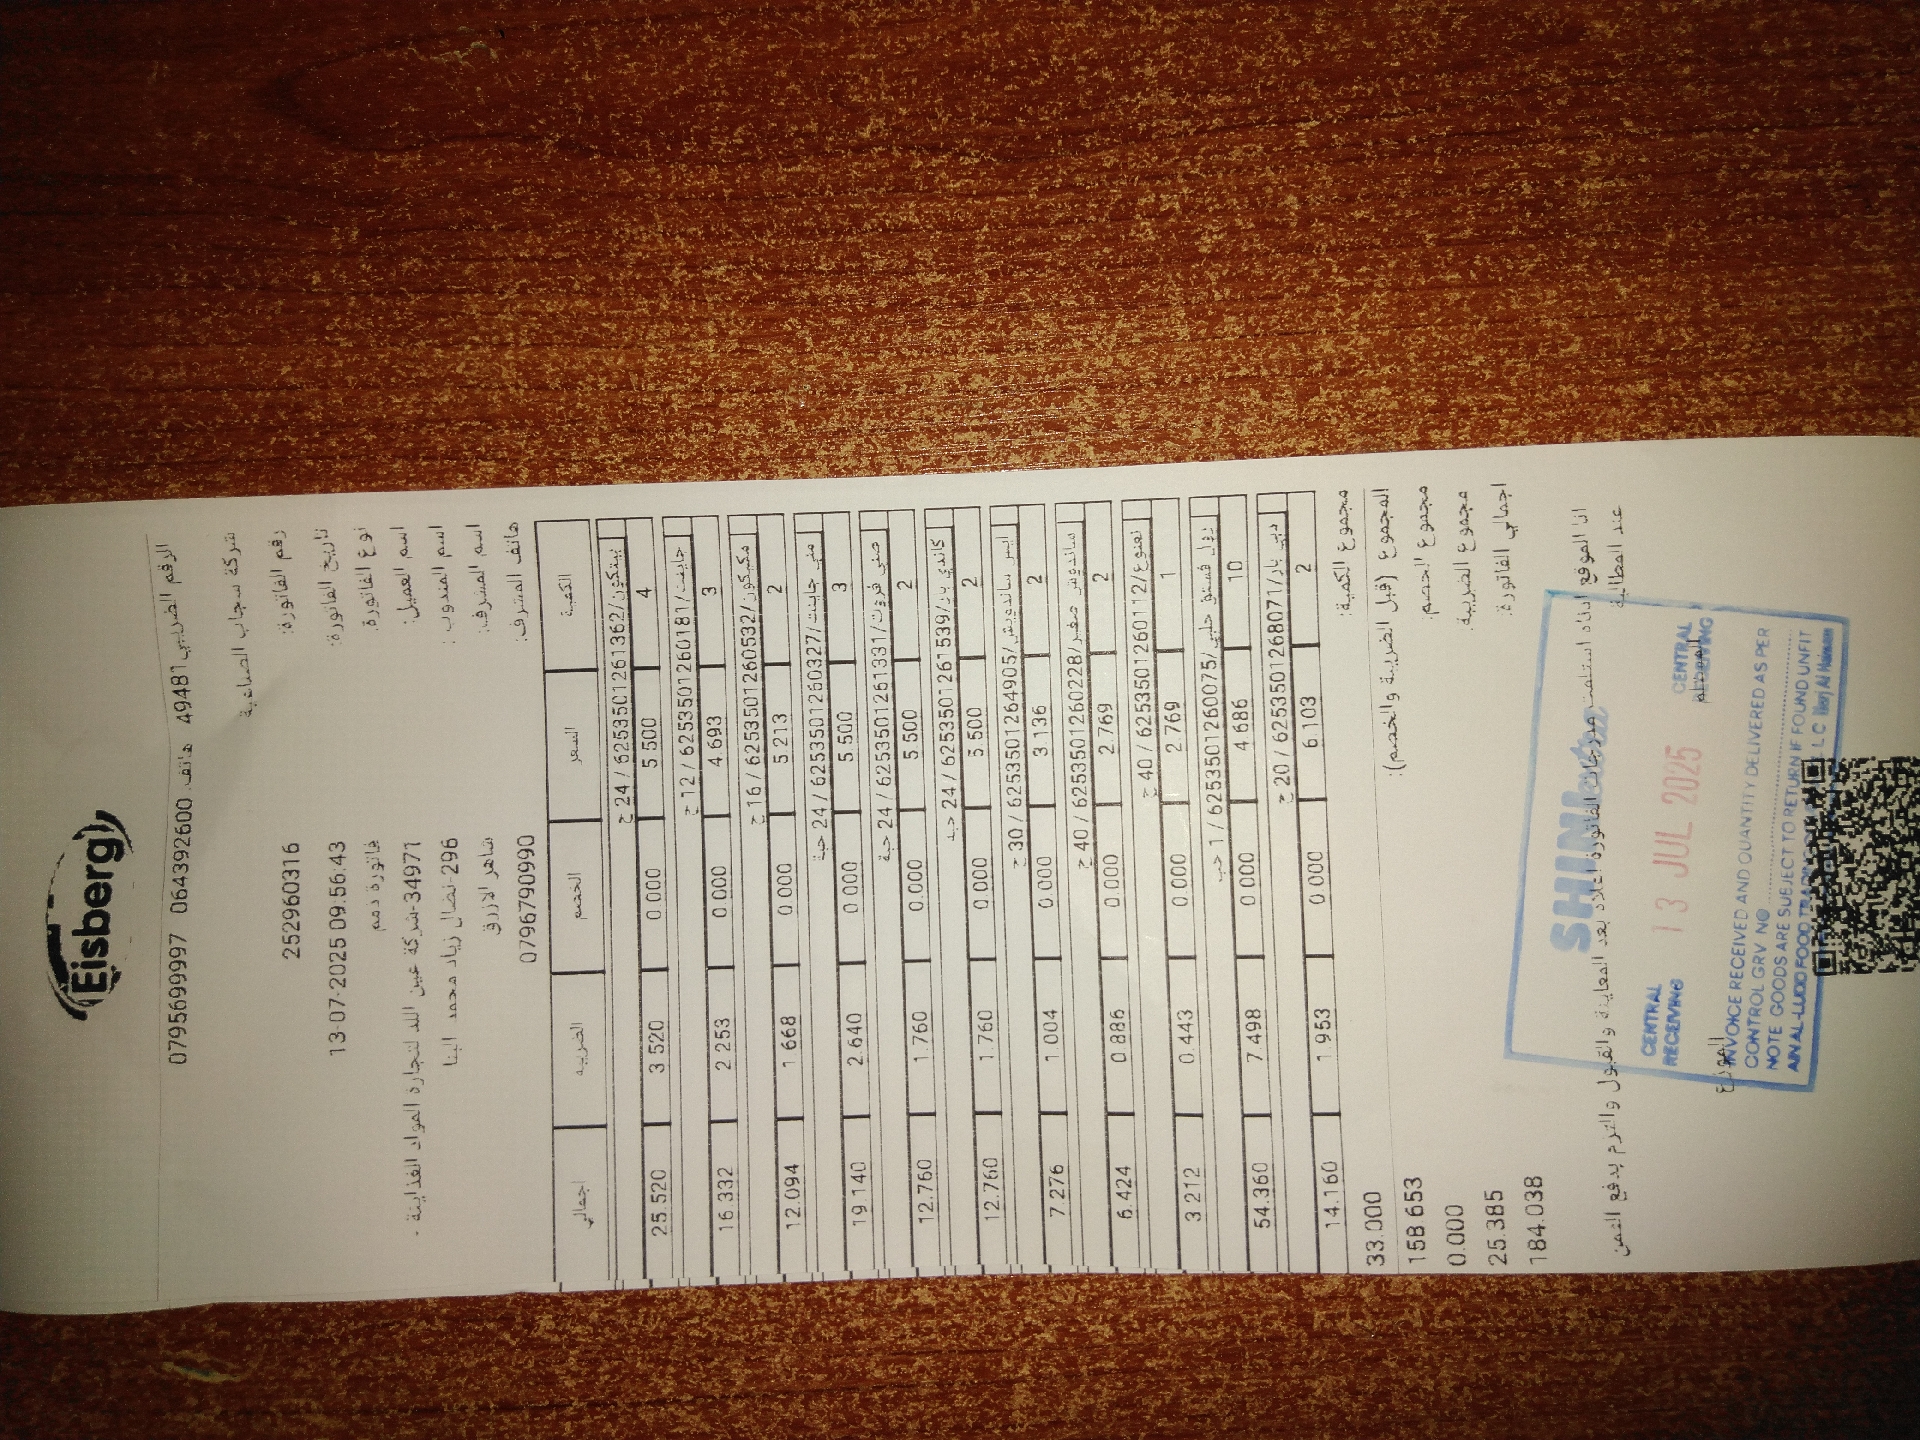 Eisberg
الرقم الضريبي 49481 هاتف 064392600 0795699997
شركة سجاب الصناعية
رقم الفاتورة: 252960316
تاريخ الفاتورة: 13-07-2025 09:56:43
نوع الفاتورة: فاتورة ذمم
اسم العميل: 34971-شركة عين اللد لتجارة المواد الغذائية -
اسم المندوب: 296-نضال زياد محمد البنا
اسم المشرف: شاهر الازرق
هاتف المشرف: 0796790990
الكمية السعر الخصم الضريبة اجمالي
بيتكون/6253501261362 / 24 ح
4 5.500 0.000 3.520 25.520
جاينت/6253501260181 / 12 ح
3 4.693 0.000 2.253 16.332
مكيكون/6253501260532 / 16 ح
2 5.213 0.000 1.668 12.094
مني جاينت/6253501260327 / 24 حبة
3 5.500 0.000 2.640 19.140
فروت/6253501261331 / 24 حبة
2 5.500 0.000 1.760 12.760
كاندي بار/6253501261539 / 24 حبه
2 5.500 0.000 1.760 12.760
ايس ساندويش/6253501264905 / 30 ح
2 3.136 0.000 1.004 7.276
ساندوش صغير/6253501260228 / 40 ح
2 2.769 0.000 0.886 6.424
نعنوع/6253501260112 / 40 ح
1 2.769 0.000 0.443 3.212
رول فستق حلبي/6253501260075 / 1 حب
10 4.686 0.000 7.498 54.360
بار/6253501268071 / 20 ح
2 6.103 0.000 1.953 14.160
مجموع الكمية: 33.000
المجموع (قبل الضريبة والخصم): 158.653
مجموع الخصم: 0.000
مجموع الضريبة: 25.385
اجمالي الفاتورة: 184.038
انا الموقع ادناه استلمت الفاتورة اعلاه بعد المعاينة والقبول والتزم بدفع الثمن
عند المطالبة
المستلم الموزع
CENTRAL RECEIVING 13 JUL 2025 CENTRAL RECEIVING
INVOICE RECEIVED AND QUANTITY DELIVERED AS PER
CONTROL GRV NO
NOTE GOODS ARE SUBJECT TO RETURN IF FOUND UNFIT
AIN AL-LUDD FOOD TRADING CO LLC